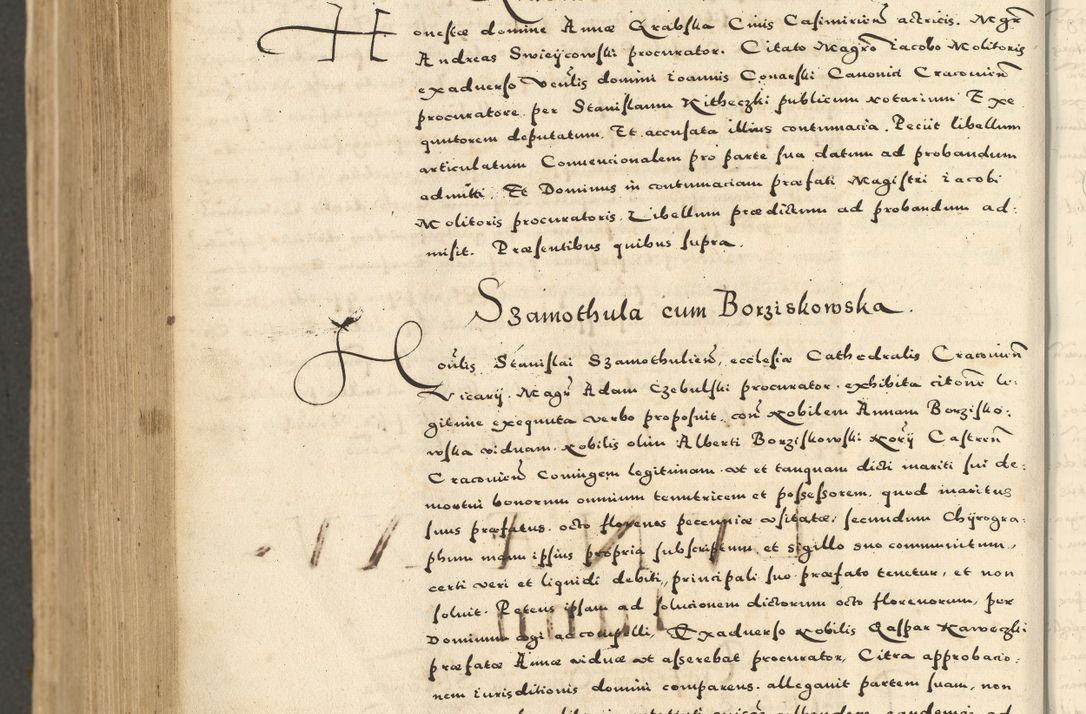 Honestæ domine Annæ Grabska Civis Casimirien̄ actricis. Magr̄
Andreas Swieycowski procurator. Citato Magr̄o Iacobo Molitoris
exadverso Ven̄lis domini Ioannis Conarski Canonici Cracovien̄
procuratore per Stanislaum Kitheczki publicum notarium Exe
quutorem deputatum. Et accusata illius contumacia. Peciit libellum
articulatum Convencionalem pro parte sua datum ad probandum
admitti. Et Dominus in contumaciam præfati Magistri Iacobi
Molitoris procuratoris. Libellum prædictum ad probandum ad:
misit. Præsentibus quibus supra.
Szamothula cum Borziskowska.
Hon̄lis Stanislai Szamothulien̄, ecclesiæ Cathedralis Cracovien̄
Vicarij. Magr̄ Adam Czebulski procurator. exhibita citōne le:
gitime exequuta verbo proposuit. con̄ Nobilem Annam Borzisko:
wska viduam. Nobilis olim Alberti Borziskowski Norij Castren̄
Cracovien̄ Coniugem legitimam. ut et tanquam dicti mariti sui de:
mortui bonorum omnium tenutricem et possessorem. quod maritus
suus præfatus. octo florenos pecuniæ usitatæ, secundum Chijrogra:
phum manu ipsius propria subscriptum et sigillo suo communitum,
certi veri et liquidi debiti, principali suo præfato tenetur, et non
solvit. Petens ipsam ad solucionem dictorum octo florenorum, per
Dominum cogi ac compelli, Exadverso Nobilis Gaspar Kaweczki
præfatæ Annæ viduæ ut asserebat procurator, Citra approbacio:
nem iurisditionis domini comparens. allegavit partem suam, non